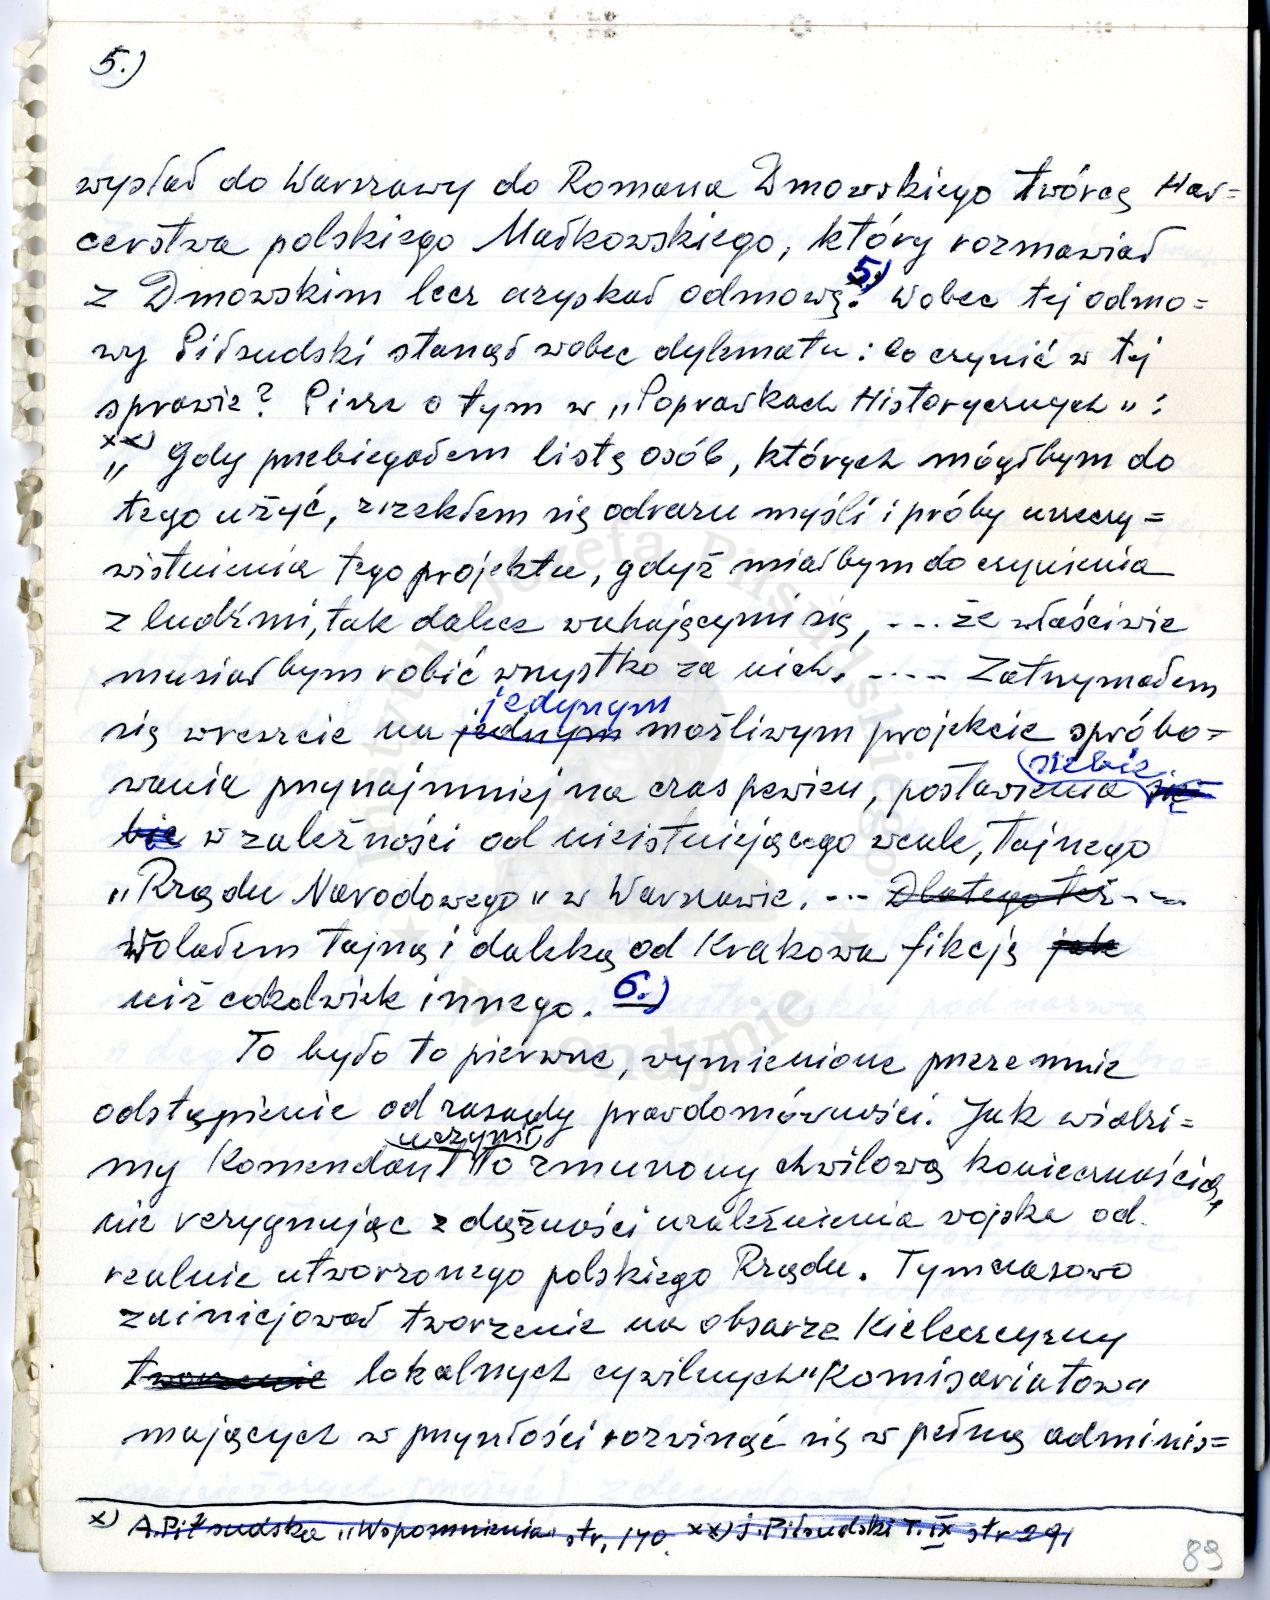 5.)
wysłał do Warszawy do Romana Dmowskiego twórcę Har=
cerstwa polskiego Małkowskiego, który rozmawiał
z Dmowskim lecz uzyskał odmowę. 5.) Wobec tej odmo=
wy Piłsudski stanął wobec dylematu: co czynić w tej
sprawie? Pisze o tym w „Poprawkach Historycznych":
xx)
„Gdy przebiegałem listę osób, których mógłbym do
tego użyć, zrzekłem się odrazu myśli i próby urzeczy=
wistnienia tego projektu, gdyż miałbym do czynienia
z ludźmi, tak dalece wahającymi się, --- że właściwie
musiałbym robić wszystko za nich. ---- Zatrzymałem
jedynym
się wreszcie na jednym możliwym projekcie spróbo=
siebie
wania przynajmniej na czas pewien, postawienia się
bie w zależności od nieistniejącego wcale, tajnego
„Rządu Narodowego" w Warszawie. --- Dlatego też ---
Wolałem tajną i daleką od Krakowa fikcję jak
niż cokolwiek innego. 6.)
To było to pierwsze, wymienione przeze mnie
odstąpienie od zasady prawdomówności. Jak widzi=
uczynił
my Komendant to zmuszony chwilową koniecznością,
nie rezygnując z dążności uzależnienia wojska od
realnie utworzonego polskiego Rządu. Tymczasowo
zainicjował tworzenie na obszarze Kielecczyzny
tworzenie lokalnych cywilnych "Komisariatów"
mających w przyszłości rozwinąć się w pełną adminis=
x) A. Piłsudska „Wspomnienia" str. 140. xx) J. Piłsudski T. IX str 291
89
Instytut Józefa Piłsudskiego
w Londynie